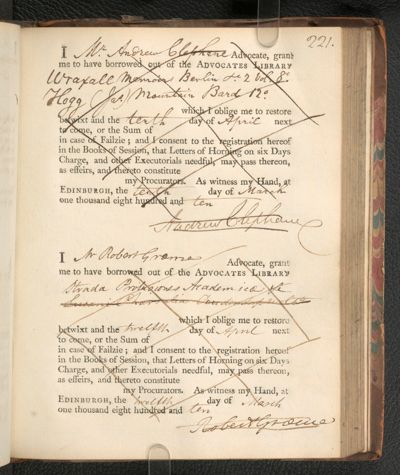 221.
I Mr. Andrew Clephane Advocate, grant
me to have borrowed out of the ADVOCATES LIBRARY
Wraxall Memoirs Berlin &c 2 Vol. 8o
Hogg (Jas) Mountain Bard 12o
which I oblige me to restore
betwixt and the tenth day of April next
to come, or the Sum of
in case of Failzie; and I consent to the registration hereof
in the Books of Session, that Letters of Horning on six Days
Charge, and other Executorials needful, may pass thereon,
as effeirs, and thereto constitute
my Procurators. As witness my Hand, at
EDINBURGH, the tenth day of March
one thousand eight hundred and ten
Andrew Clephane
I Mr Robert Graeme Advocate, grant
me to have borrowed out of the ADVOCATES LIBRARY
Strada Prolusiones Academicae
which I oblige me to restore
betwixt and the twelfth day of April next
to come, or the Sum of
in case of Failzie; and I consent to the registration hereof
in the Books of Session, that Letters of Horning on six Days
Charge, and other Executorials needful, may pass thereon,
as effeirs, and thereto constitute
my Procurators. As witness my Hand, at
EDINBURGH, the twelfth day of March
one thousand eight hundred and ten
Robert Graeme